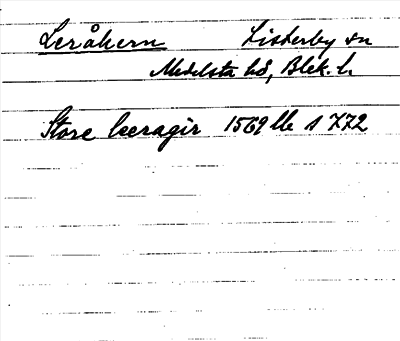 Leråkern Listerby sn
Medelsta hd, Blek. l.
Store leeragir 1569 lb 1 772